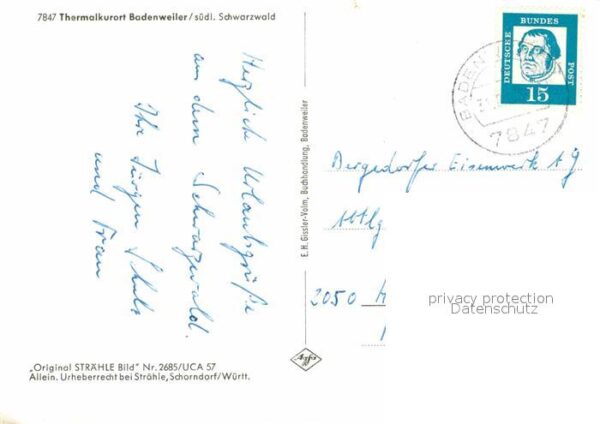 7847 Thermalkurort Badenweiler / südl. Schwarzwald
Herzliche Urlaubsgrüße
aus dem Schwarzwald.
Ihr Jürgen Schulz
und Frau
"Original STRÄHLE Bild" Nr. 2685/UCA 57
Allein. Urheberrecht bei Strähle, Schorndorf/Württ.
E. H. Gissler-Valm, Buchhandlung, Badenweiler
DEUTSCHE
BUNDES
POST
15
BADENW
7847
Bergedorfer Eisenwerk AG
Abtlg
2050 H
privacy protection
Datenschutz